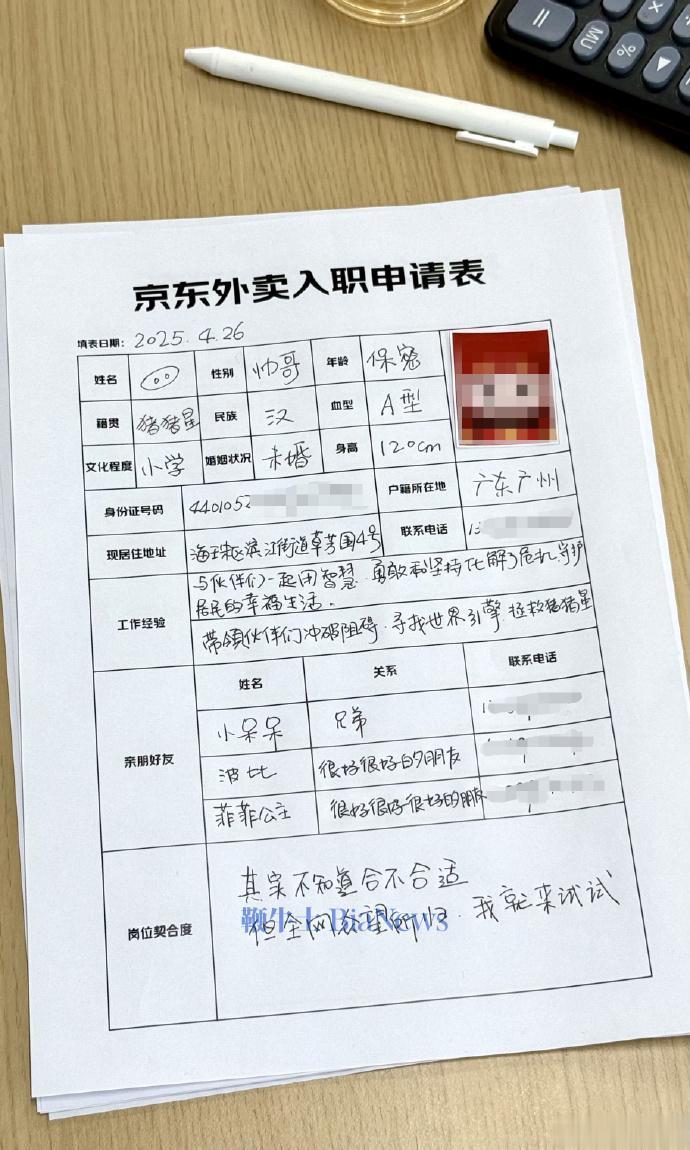 京东外卖入职申请表
填表日期: 2025.4.26
姓名 性别 帅哥 年龄 保密
籍贯 猪猪星 民族 汉 血型 A型
文化程度 小学 婚姻状况 未婚 身高 120cm
身份证号码 4401052 户籍所在地 广东广州
现居住地址 海珠区滨江街道草芳围4号 联系电话 13
工作经验
与伙伴们一起用智慧、勇敢和坚持化解了危机,守护
居民的幸福生活。
带领伙伴们冲破阻碍、寻找世界引擎 拯救猪猪星
亲朋好友
姓名 关系 联系电话
小呆呆 兄弟 1
波比 很好很好的朋友
菲菲公主 很好很好很好的朋友
岗位契合度
其实不知道合不合适
但全网众望所归、我就来试试
鞭牛士 BiaNews
=
MU
%
×